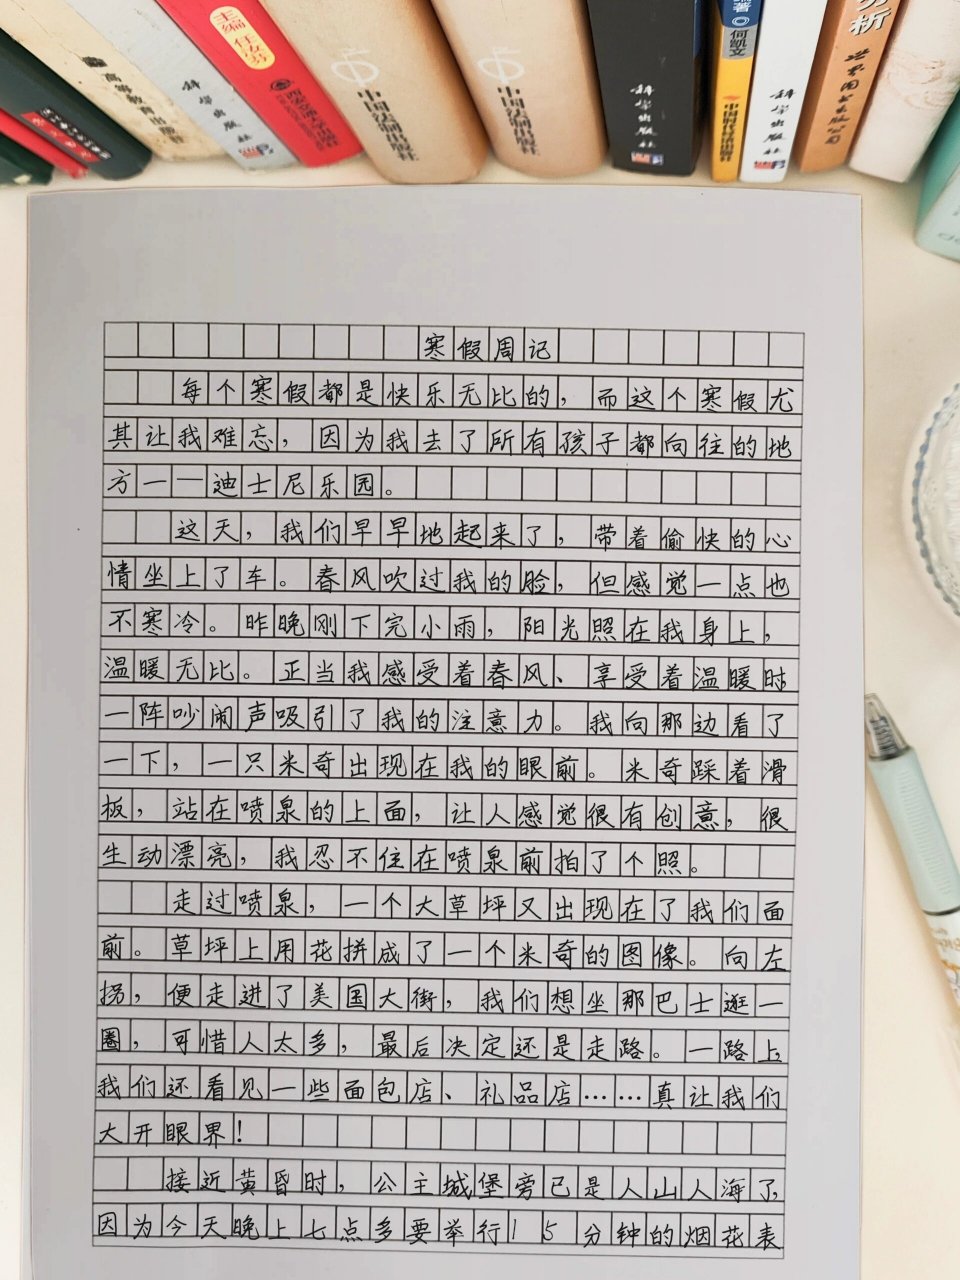 高等教育出版社
科学出版社
主编 任汝芬
中国法制出版社
中国法制出版社
科学出版社
编著 ◎ 何凯文
中国时代经济出版社
科学出版社
分析
世界图书出版公司
寒假周记
每个寒假都是快乐无比的，而这个寒假尤
其让我难忘，因为我去了所有孩子都向往的地
方——迪士尼乐园。
这天，我们早早地起来了，带着愉快的心
情坐上了车。春风吹过我的脸，但感觉一点也
不寒冷。昨晚刚下完小雨，阳光照在我身上，
温暖无比。正当我感受着春风、享受着温暖时
一阵吵闹声吸引了我的注意力。我向那边看了
一下，一只米奇出现在我的眼前。米奇踩着滑
板，站在喷泉的上面，让人感觉很有创意，很
生动漂亮，我忍不住在喷泉前拍了个照。
走过喷泉，一个大草坪又出现在了我们面
前。草坪上用花拼成了一个米奇的图像。向左
拐，便走进了美国大街，我们想坐那巴士逛一
圈，可惜人太多，最后决定还是走路。一路上，
我们还看见一些面包店、礼品店……真让我们
大开眼界！
接近黄昏时，公主城堡旁已是人山人海了，
因为今天晚上七点多要举行15分钟的烟花表